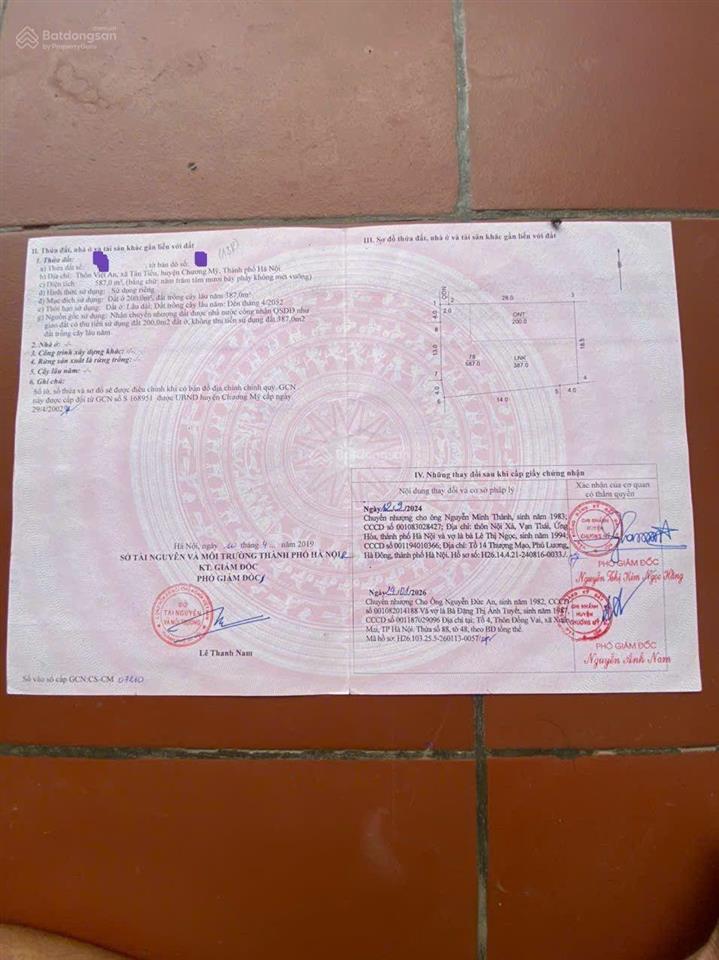 Batdongsan
by PropertyGuru
II. Thửa đất, nhà ở và tài sản khác gắn liền với đất
1. Thửa đất:
a) Thửa đất số: , tờ bản đồ số:
b) Địa chỉ: Thôn Việt An, xã Tân Tiến, huyện Chương Mỹ, Thành phố Hà Nội
c) Diện tích: 587,0 m², (bằng chữ: năm trăm tám mươi bảy phẩy không mét vuông)
d) Hình thức sử dụng: Sử dụng riêng
đ) Mục đích sử dụng: Đất ở 200.0m², đất trồng cây lâu năm 387,0m².
e) Thời hạn sử dụng: Đất ở: Lâu dài; Đất trồng cây lâu năm: Đến tháng 4/2052
g) Nguồn gốc sử dụng: Nhận chuyển nhượng đất được nhà nước công nhận QSDĐ như
giao đất có thu tiền sử dụng đất 200,0m2 đất ở, không thu tiền sử dụng đất 387,0m2
đất trồng cây lâu năm
2. Nhà ở: -/-
3. Công trình xây dựng khác: -/-
4. Rừng sản xuất là rừng trồng: -/-
5. Cây lâu năm: -/-
6. Ghi chú:
Số tờ, số thửa và sơ đồ sẽ được điều chỉnh khi có bản đồ địa chính chính quy. GCN
này được cấp đổi từ GCN số S 168951 được UBND huyện Chương Mỹ cấp ngày
29/4/2002
Hà Nội, ngày tháng 4 năm 2019
SỞ TÀI NGUYÊN VÀ MÔI TRƯỜNG THÀNH PHỐ HÀ NỘI
KT. GIÁM ĐỐC
PHÓ GIÁM ĐỐC
SỞ
TÀI NGUYÊN
Lê Thanh Nam
Số vào sổ cấp GCN:CS-CM 07210
III. Sơ đồ thửa đất, nhà ở và tài sản khác gắn liền với đất
ONT
200.0
LNK
387.0
78
587.0
28.0
18.5
14.0
13.0
4.0
4.0
4.0
2.0
1
2
3
4
5
6
7
8
IV. Những thay đổi sau khi cấp giấy chứng nhận
Nội dung thay đổi và cơ sở pháp lý
Xác nhận của cơ quan
có thẩm quyền
Ngày 12/9/2024
Chuyển nhượng cho ông Nguyễn Minh Thành, sinh năm 1983;
CCCD số 001083028427; Địa chỉ: thôn Nội Xá, Vạn Thái, Ứng
Hòa, thành phố Hà Nội và vợ là bà Lê Thị Ngọc, sinh năm 1994;
CCCD số 001194010366; Địa chỉ: Tổ 14 Thượng Mạo, Phú Lương,
Hà Đông, thành phố Hà Nội. Hồ sơ số: H26.14.4.21-240816-0033./.
CHI NHÁNH
HUYỆN
CHƯƠNG MỸ
PHÓ GIÁM ĐỐC
Nguyễn Thị Kim Ngọc Hằng
/2026
Chuyển nhượng Cho Ông Nguyễn Đức An, sinh năm 1982, CCCD
số 001082014188 Và vợ là Bà Đặng Thị Ánh Tuyết, sinh năm 1987,
CCCD số 001187029096 Địa chỉ tại: Tổ 4, Thôn Đồng Vai, xã Xuân
Mai, TP Hà Nội. Thửa số 88, tờ 48, theo BĐ tổng thể.
Mã hồ sơ: H26.103.25.5-260113-0057
CHI NHÁNH
HUYỆN
CHƯƠNG MỸ
PHÓ GIÁM ĐỐC
Nguyễn Anh Nam